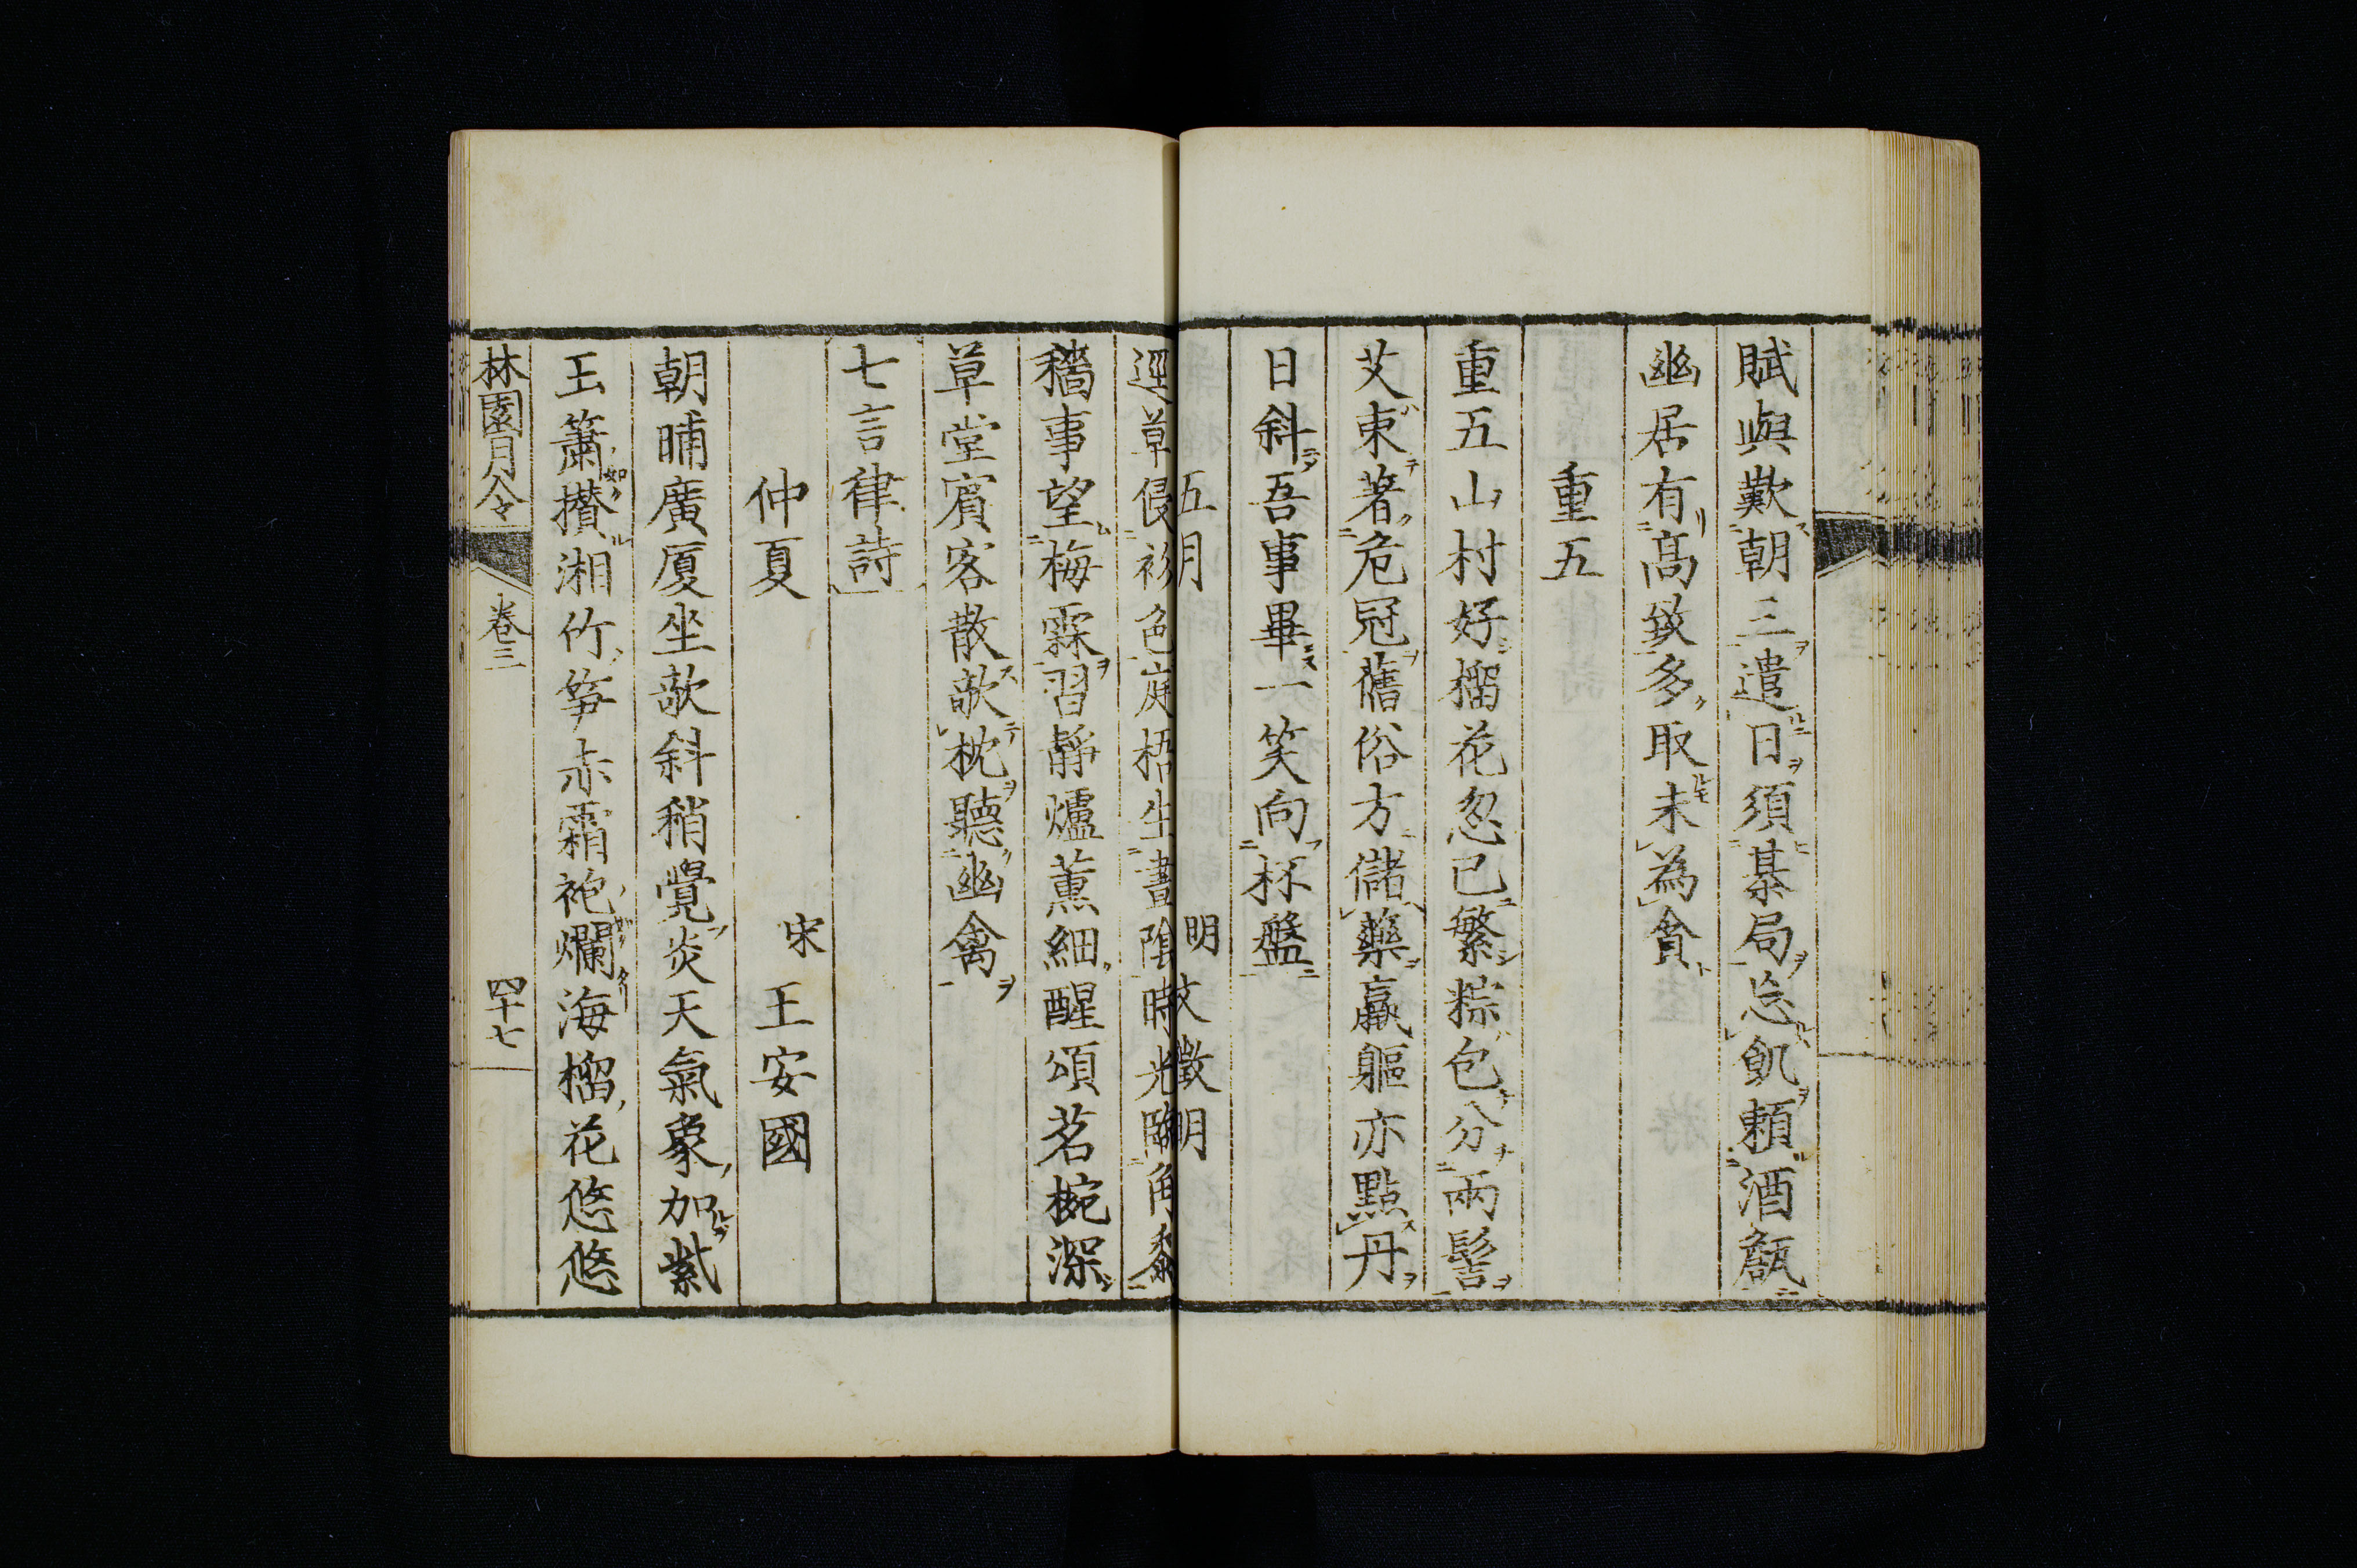 賦與歎朝三遣日須棊局忘飢頼酒瓻
幽居有高致多取未為貪
重五
重五山村好榴花忽已繁粽包分兩髻
艾束著危冠舊俗方儲藥羸軀亦點丹
日斜吾事畢一笑向杯盤
五月 明 文徵明
逕草侵衫色庭梧生晝陰時光臨角黍
穡事望梅霖習靜爐薰細醒煩茗椀深
草堂賓客散欹枕聽幽禽
七言律詩
仲夏 宋 王安國
朝晡廣厦坐欹斜稍覺炎天氣象加紫
玉簫攢湘竹笋赤霜袍爛海榴花悠悠
林園月令 卷三 四十七